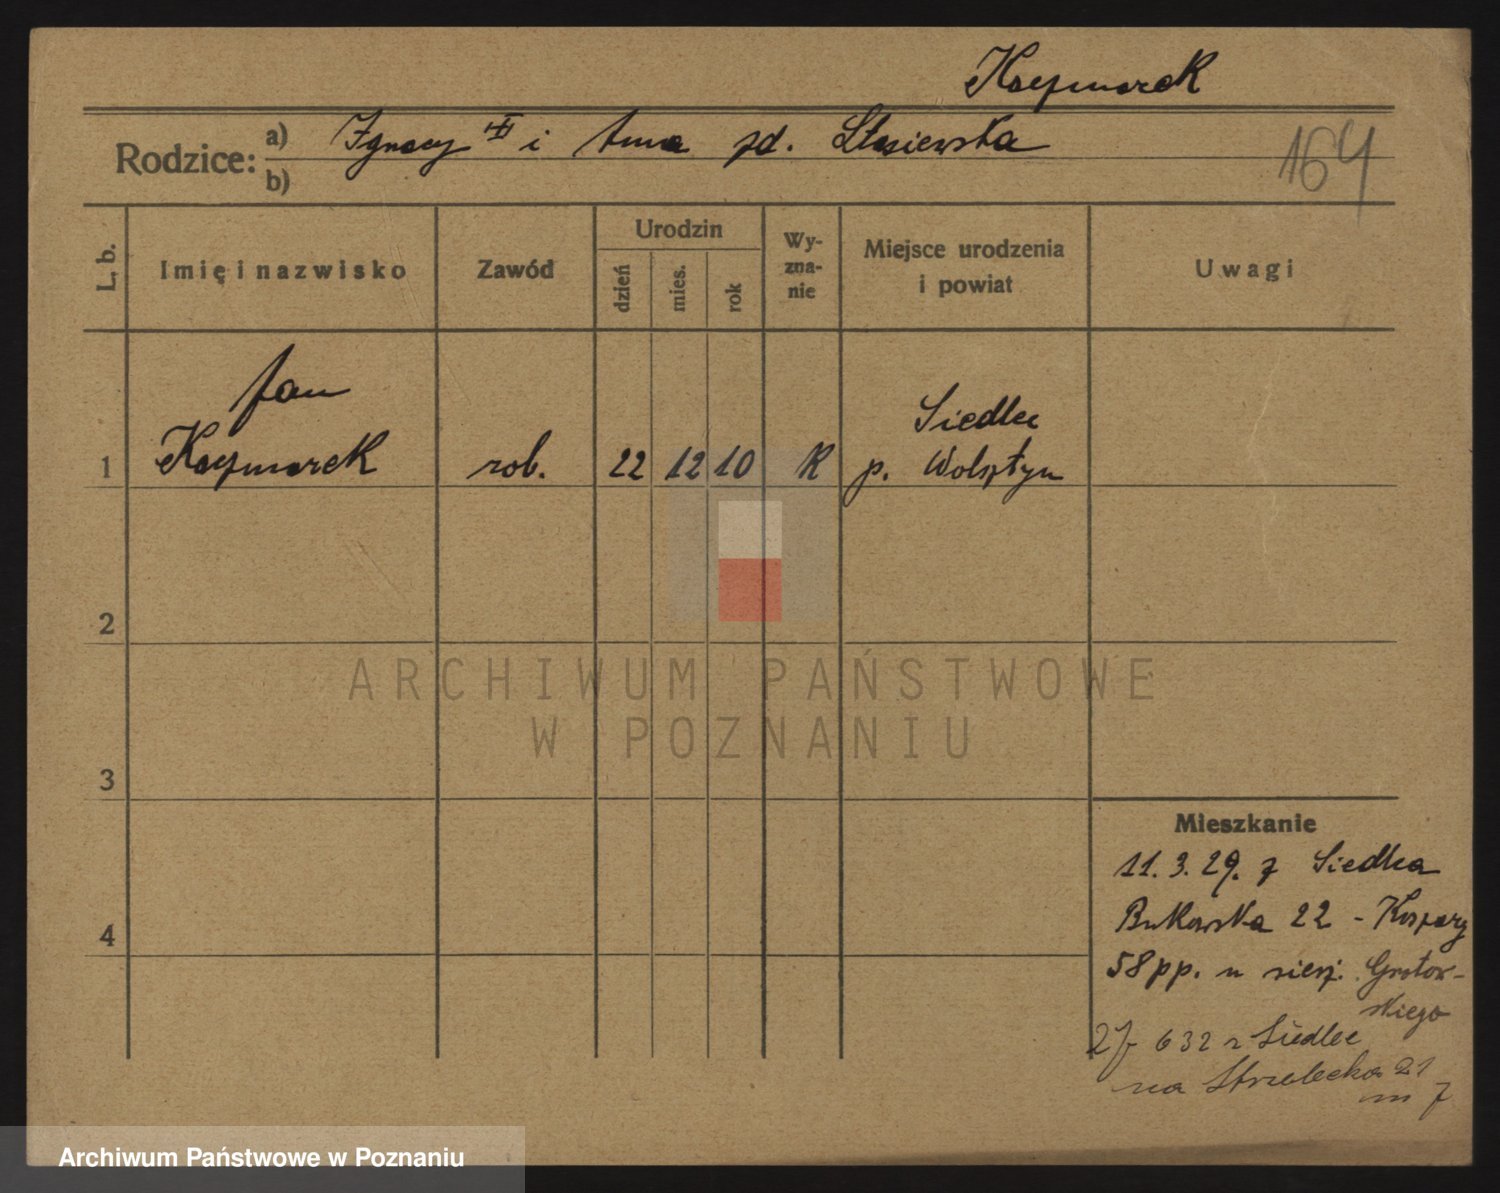 Kaczmarek
Rodzice: a) Ignacy i Anna zd. Stasiewska
b)
164
L. b. Imię i nazwisko Zawód Urodzin dzień mies. rok Wy-zna-nie Miejsce urodzenia i powiat Uwagi
Jan Siedlec
1 Kaczmarek rob. 22 12 10 R p. Wolsztyn
2
ARCHIWUM PAŃSTWOWE
W POZNANIU
3
Mieszkanie
11. 3. 29. z Siedlca
4 Bukowska 22 - Koszary
58 pp. u sierż. Grotow-
skiego
632 z Siedlec
na Strzelecka 21
m 7
Archiwum Państwowe w Poznaniu